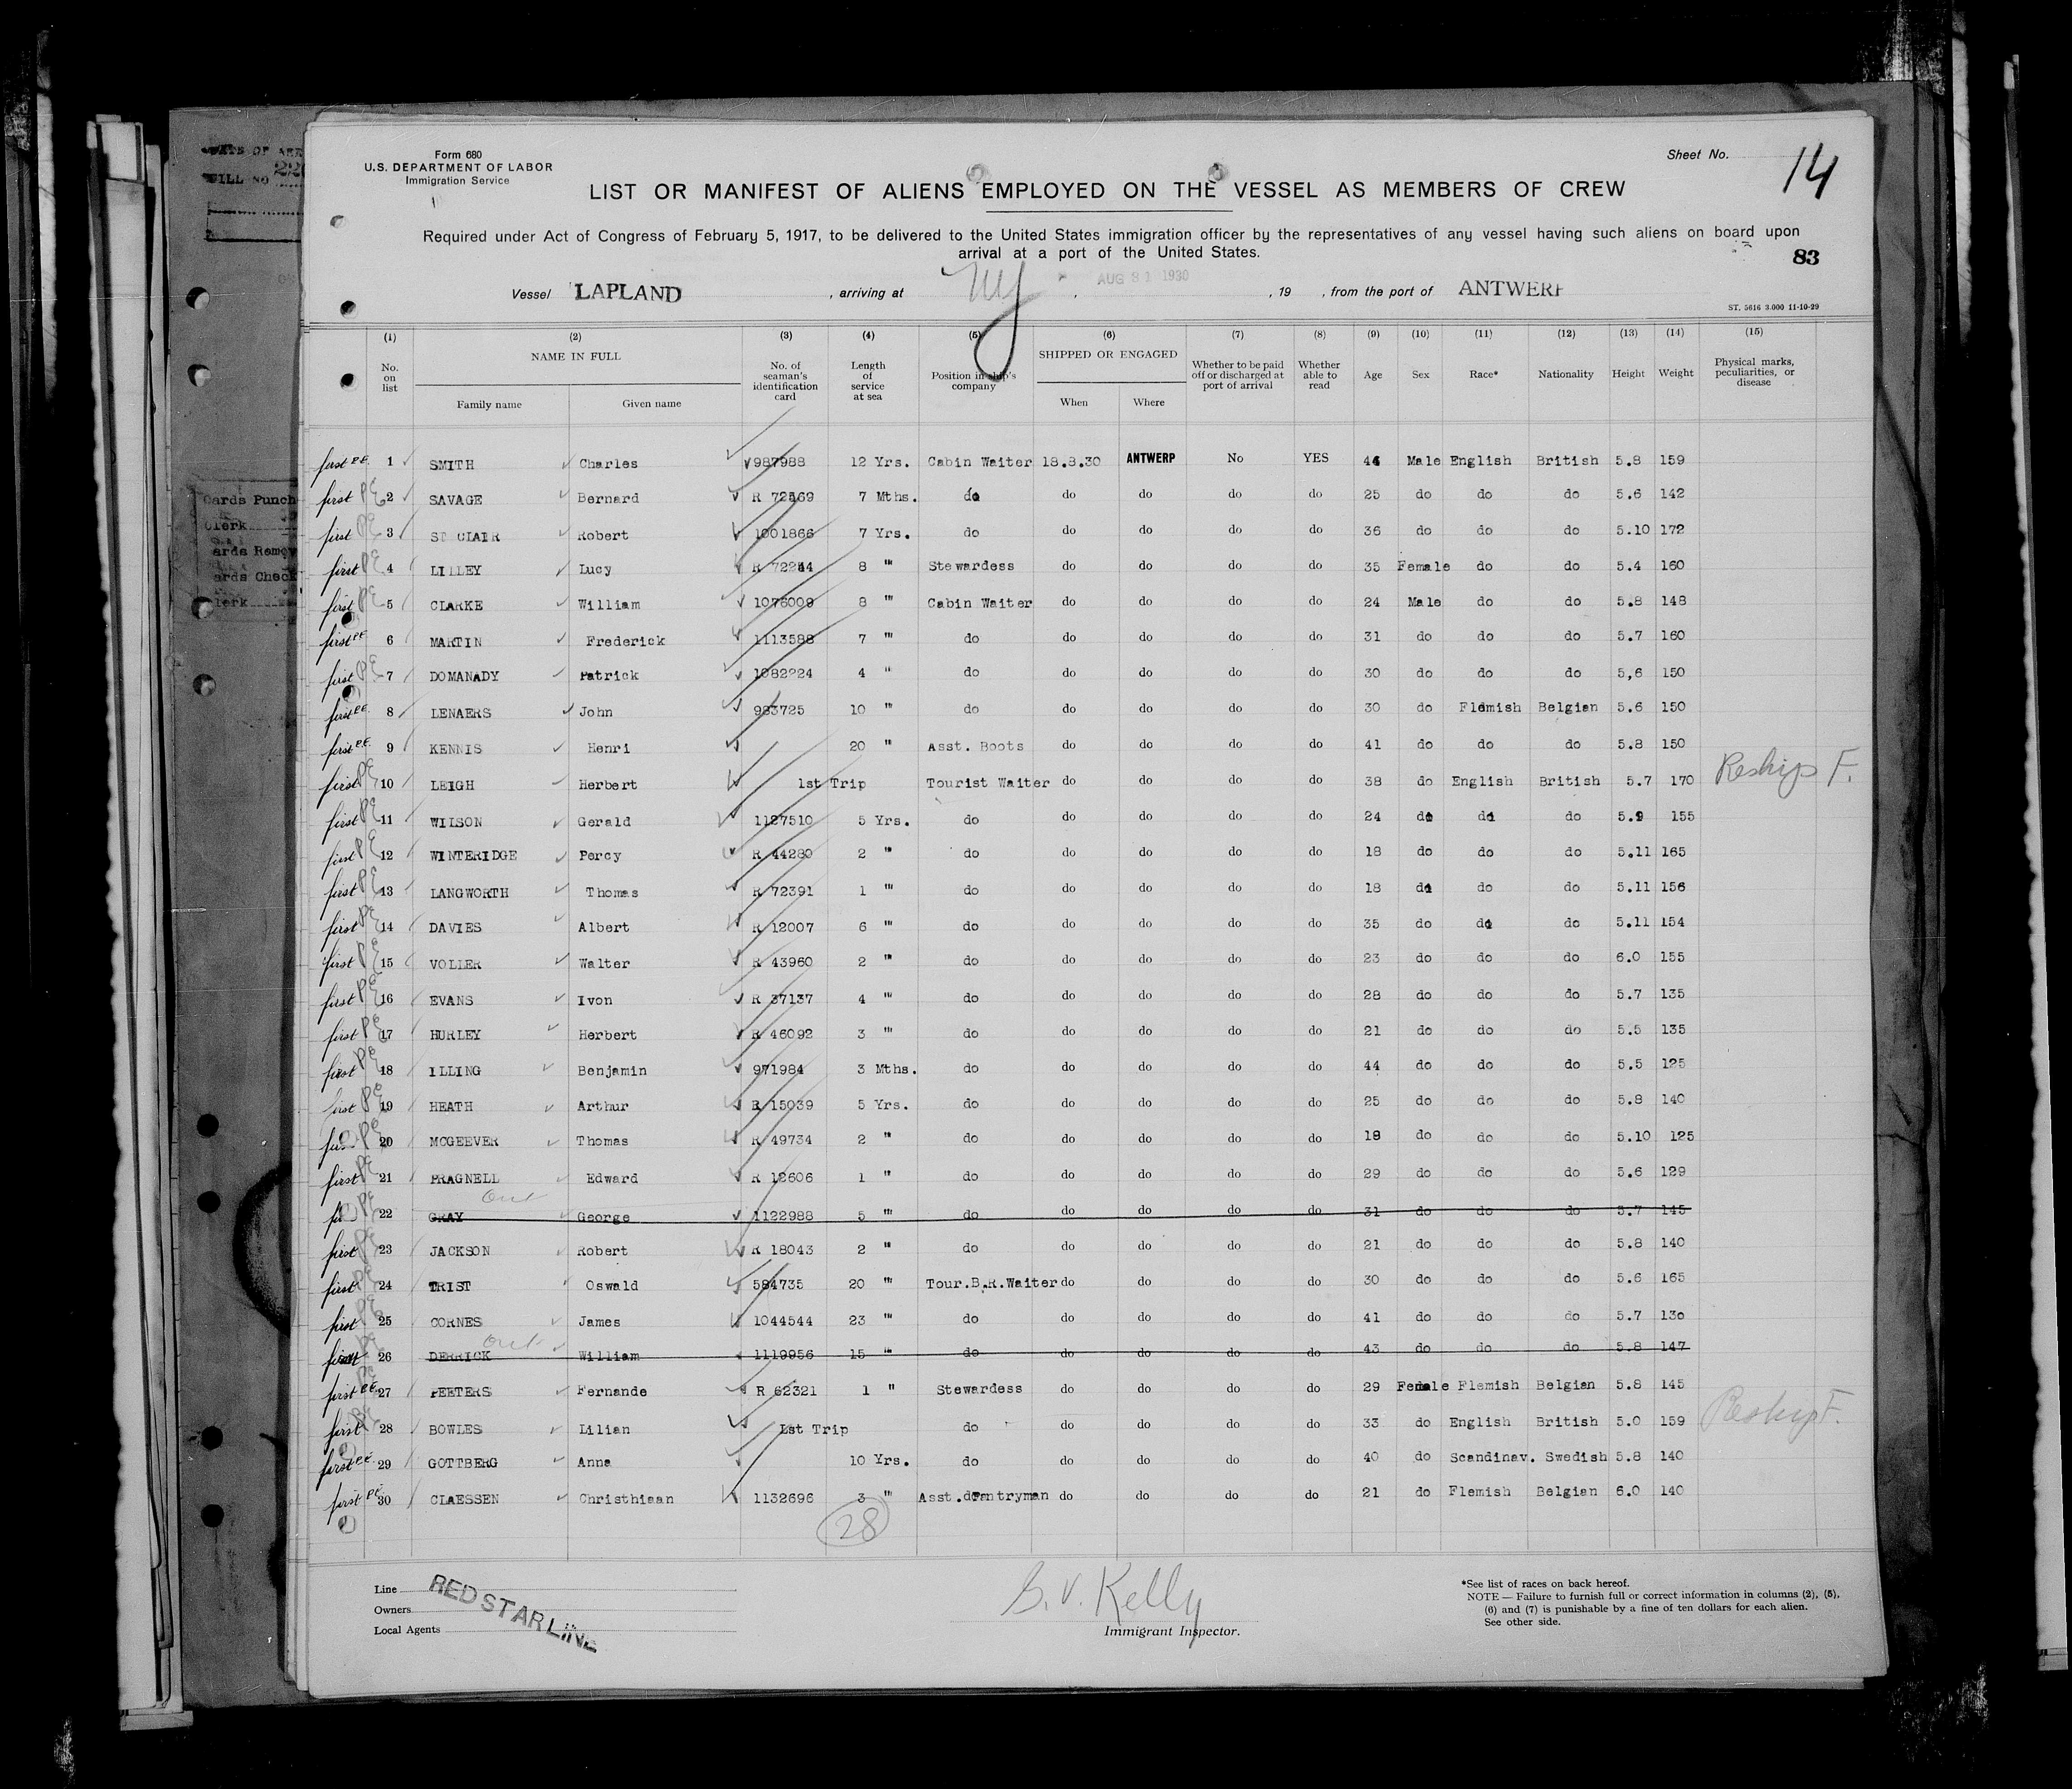 Form 680
U.S. DEPARTMENT OF LABOR
Immigration Service
Sheet No. 14
LIST OR MANIFEST OF ALIENS EMPLOYED ON THE VESSEL AS MEMBERS OF CREW
Required under Act of Congress of February 5, 1917, to be delivered to the United States immigration officer by the representatives of any vessel having such aliens on board upon
arrival at a port of the United States.
83
Vessel LAPLAND , arriving at NY , AUG 31 1930 , 19 , from the port of ANTWERP
ST. 5616 3.000 11-10-29
(1) (2) (3) (4) (5) (6) (7) (8) (9) (10) (11) (12) (13) (14) (15)
No. on list NAME IN FULL Family name Given name No. of seaman's identification card Length of service at sea Position in ship's company SHIPPED OR ENGAGED When Where Whether to be paid off or discharged at port of arrival Whether able to read Age Sex Race* Nationality Height Weight Physical marks, peculiarities, or disease
first P.E. 1 SMITH Charles 987988 12 Yrs. Cabin Waiter 18.8.30 ANTWERP No YES 44 Male English British 5.8 159
first PE 2 SAVAGE Bernard R 72569 7 Mths. do do do do do 25 do do do 5.6 142
first PE 3 ST CLAIR Robert 1001866 7 Yrs. do do do do do 36 do do do 5.10 172
first PE 4 LILLEY Lucy R 72244 8 " Stewardess do do do do 35 Female do do 5.4 160
first PE 5 CLARKE William 1076009 8 " Cabin Waiter do do do do 24 Male do do 5.8 148
first PE 6 MARTIN Frederick 1113588 7 " do do do do do 31 do do do 5.7 160
first PE 7 DOMANADY Patrick 1082224 4 " do do do do do 30 do do do 5,6 150
first P.E. 8 LENAERS John 983725 10 " do do do do do 30 do Flemish Belgian 5.6 150
first P.E. 9 KENNIS Henri 20 " Asst. Boots do do do do 41 do do do 5.8 150
first PE 10 LEIGH Herbert 1st Trip Tourist Waiter do do do do 38 do English British 5.7 170 Reship F.
first PE 11 WILSON Gerald 1127510 5 Yrs. do do do do do 24 do do do 5.9 155
first PE 12 WINTERIDGE Percy R 44280 2 " do do do do do 18 do do do 5.11 165
first PE 13 LANGWORTH Thomas R 72391 1 " do do do do do 18 do do do 5.11 156
first PE 14 DAVIES Albert R 12007 6 " do do do do do 35 do do do 5.11 154
first PE 15 VOLLER Walter R 43960 2 " do do do do do 23 do do do 6.0 155
first PE 16 EVANS Ivon R 37137 4 " do do do do do 28 do do do 5.7 135
first PE 17 HURLEY Herbert R 46092 3 " do do do do do 21 do do do 5.5 135
first PE 18 ILLING Benjamin 971984 3 Mths. do do do do do 44 do do do 5.5 125
first PE 19 HEATH Arthur R 15039 5 Yrs. do do do do do 25 do do do 5.8 140
PE 20 MCGEEVER Thomas R 49734 2 " do do do do do 18 do do do 5.10 125
first PE 21 PRAGNELL Edward R 12606 1 " do do do do do 29 do do do 5.6 129
out
PE 22 GRAY George 1122988 5 " do do do do do 31 do do do 5.7 145
first PE 23 JACKSON Robert R 18043 2 " do do do do do 21 do do do 5.8 140
first PE 24 TRIST Oswald 584735 20 " Tour.B.R.Waiter do do do do 30 do do do 5.6 165
first PE 25 CORNES James 1044544 23 " do do do do do 41 do do do 5.7 130
out
first PE 26 DERRICK William 1119956 15 " do do do do do 43 do do do 5.8 147
first P.E. 27 PEETERS Fernande R 62321 1 " Stewardess do do do do 29 Female Flemish Belgian 5.8 145
first PE 28 BOWLES Lilian 1st Trip do do do do do 33 do English British 5.0 159 Reship F.
first P.E. 29 GOTTBERG Anna 10 Yrs. do do do do do 40 do Scandinav. Swedish 5.8 140
first P.E. 30 CLAESSEN Christhiaan 1132696 3 " Asst. Pantryman do do do do 21 do Flemish Belgian 6.0 140
28
Line
Owners
Local Agents
RED STAR LINE
S. V. Kelly
Immigrant Inspector.
*See list of races on back hereof.
NOTE — Failure to furnish full or correct information in columns (2), (5),
(6) and (7) is punishable by a fine of ten dollars for each alien.
See other side.